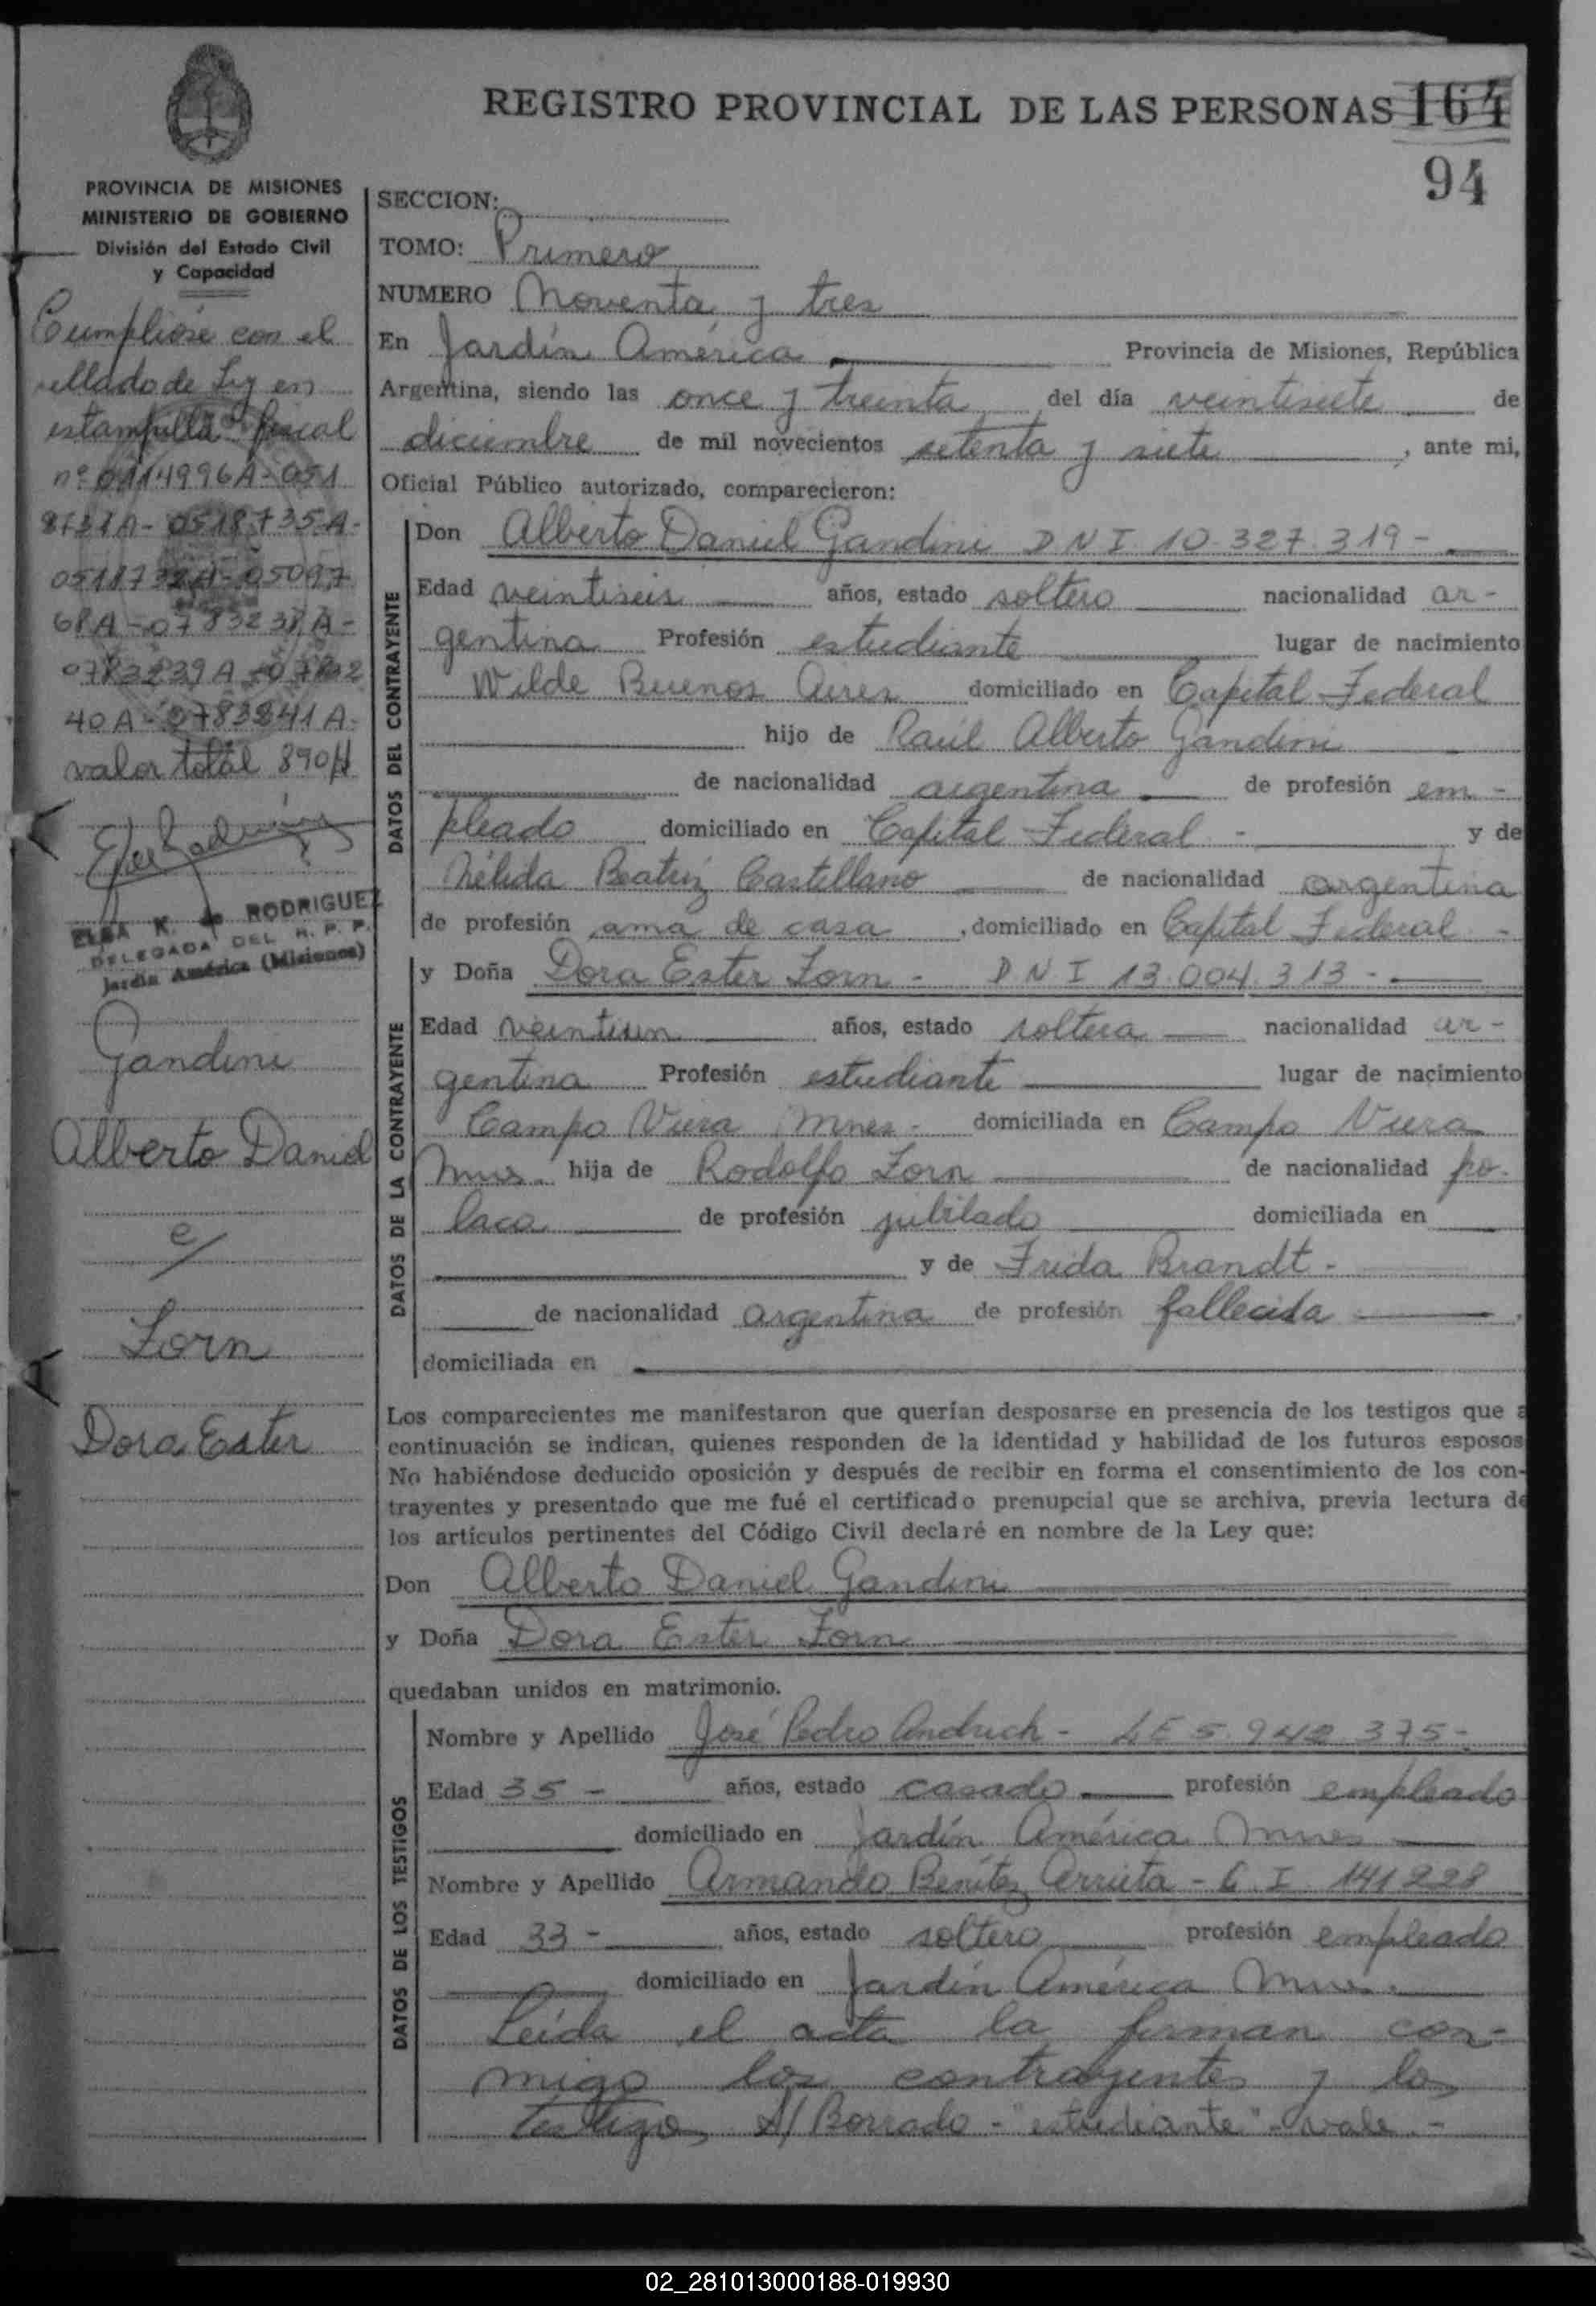 REGISTRO PROVINCIAL DE LAS PERSONAS 164
94
PROVINCIA DE MISIONES
MINISTERIO DE GOBIERNO
División del Estado Civil
y Capacidad
Cumplióse con el
sellado de Ley en
estampilla fiscal
nº 0114996A-051
8731A-0518735A-
40A-0783241A-
valor total 890
ELSA K. de RODRIGUEZ
DELEGADA DEL R. P. P.
Jardín América (Misiones)
Gandini
Alberto Daniel
c/
Zorn
Dora Ester
SECCION:
TOMO: Primero
NUMERO Noventa y tres
En Jardín América Provincia de Misiones, República
Argentina, siendo las once y treinta del día veintisiete de
diciembre de mil novecientos setenta y siete, ante mi,
Oficial Público autorizado, comparecieron:
DATOS DEL CONTRAYENTE
Don Alberto Daniel Gandini DNI 10.327.319-
Edad veintiseis años, estado soltero nacionalidad ar-
gentina Profesión estudiante lugar de nacimiento
Wilde Buenos Aires domiciliado en Capital Federal
hijo de Raúl Alberto Gandini
de nacionalidad argentina de profesión em-
pleado domiciliado en Capital Federal - y de
Nélida Beatriz Castellano de nacionalidad argentina
de profesión ama de casa, domiciliado en Capital Federal -
DATOS DE LA CONTRAYENTE
y Doña Dora Ester Zorn - DNI 13.004.313-
Edad veintiun años, estado soltera nacionalidad ar-
gentina Profesión estudiante lugar de nacimiento
Campo Viera Mnes- domiciliada en Campo Viera
Mnes. hija de Rodolfo Zorn de nacionalidad po-
laca de profesión jubilado domiciliada en
y de Frida Brandt -
de nacionalidad argentina de profesión fallecida
domiciliada en
Los comparecientes me manifestaron que querían desposarse en presencia de los testigos que a
continuación se indican, quienes responden de la identidad y habilidad de los futuros esposos
No habiéndose deducido oposición y después de recibir en forma el consentimiento de los con-
trayentes y presentado que me fué el certificado prenupcial que se archiva, previa lectura de
los artículos pertinentes del Código Civil declaré en nombre de la Ley que:
Don Alberto Daniel Gandini
y Doña Dora Ester Zorn
quedaban unidos en matrimonio.
DATOS DE LOS TESTIGOS
Nombre y Apellido José Pedro Andruch - LE 5.942.375-
Edad 35- años, estado casado profesión empleado
domiciliado en Jardín América Mnes
Nombre y Apellido Armando Benítez Arrieta - C I 141228
Edad 33- años, estado soltero profesión empleado
domiciliado en Jardín América Mnes.
Leída el acta la firman con-
migo los contrayentes y los
testigos S/ Borrado - "estudiante" - vale -
02_281013000188-019930